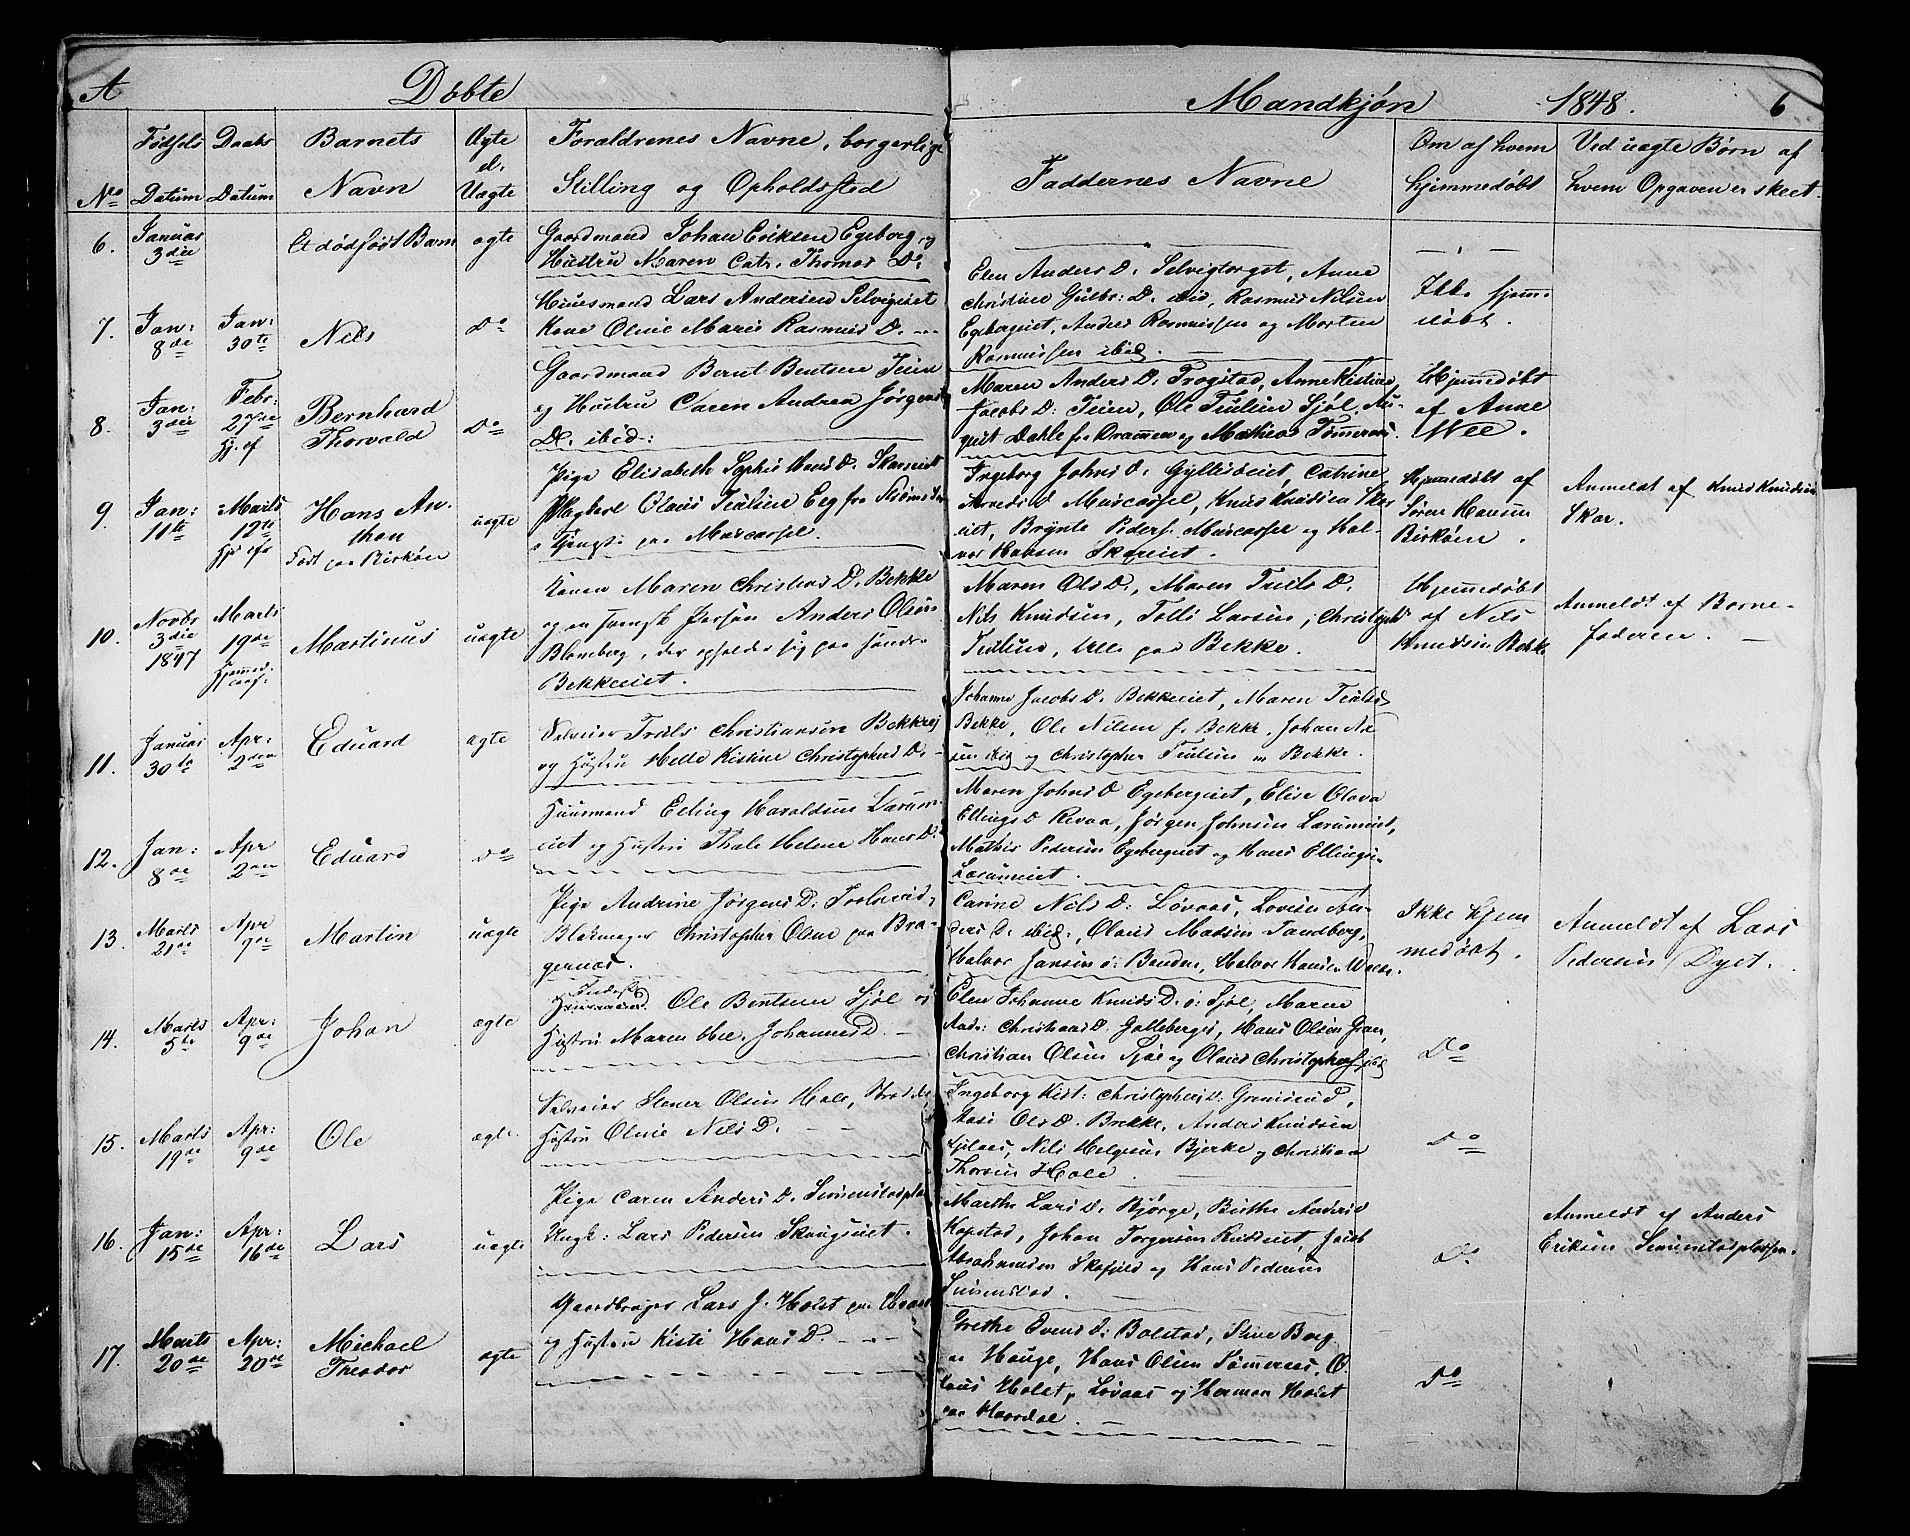 A Døbte Mandkjøn 1848. 6
No Fødsels Datum Daabs Datum Barnets Navn Ægte el. Uægte Forældrenes Navne, borgerlige Stilling og Opholdssted Faddernes Navne Om af hvem hjemmedøbt Ved uægte Børn af hvem Opgaven er skeet.
6. Januar 3die Et dødfødt Barn ægte
Gaardmand Johan Eriksen Egeberg og
Hustru Maren Cath. Thomas D.
7. Jan: 8de Jan: 30te Nils Do
Huusmand Lars Andersen Selvigeiet
Kone Oline Marie Rasmus D.
Elen Anders D. Selvigtorget, Anne
Christine Gulbr: D. ibid, Rasmus Nilsen
Egebergeiet, Anders Rasmussen og Morten
Rasmussen ibid.
Ikke hjem-
døbt.
8. Jan: 3die Febr: 27de Hj. af Bernhard Thorvald Do
Gaardmand Bernt Bentsen Teien
og Hustru Caren Andrea Jørgens
D. ibid:
Maren Anders D. Frogstad, Anne Kistine
Jacobs D. Teien, Ole Truelsen Sjøl, Au-
gust Dahle fra Drammen og Mathias Tømmeraas.
Hjemmedøbt
af Anne
Wee.
9. Jan: 11te Marts 12te Hans An-
thon
Født paa Birkøen uægte
Pige Elisabeth Sophie Hans D. Skareiet
Olaus Truelsen Eeg fra Strømsøe
i Tjeneste paa Muscaasel.
Ingeborg Johns D. Gylliseiet, Catrine
Arneds D. Muscassel, Knud Knudsen Skar
eiet, Brynte Peders. Muscassel og Hal-
vor Hansen Skareiet.
Hjemmedøbt af
Søren Hansen
Birkøen.
Anmeldt af Knud Knudsen
Skar.
10. Novbr 3die 1847 Marts 19de Martinus uægte
Konen Maren Christens D. Bekke
og en svensk Person Anders Olsen
Blomberg, der opholder sig paa Søndre
Bekkeeiet.
Maren Ols D., Maren Truels D.
Nils Knudsen, Tolle Larsen, Christoph
Truelsen, Alle paa Bekke.
Hjemmedøbt
af Nils
Knudsen Bekke
Anmeldt af Barne-
faderen.
11. Januar 30te Apr. 2den Eduard ægte
Selveier Truels Christiansen Bekke
og Hustru Helle Kistine Christophers D.
Johanne Jacobs D. Bekkeeiet, Maren Truels D
Bekke, Ole Nilsen f. Bekke, Johan An
sen ibid og Christopher Truelsen Bekke.
12. Jan: 8de Apr 2den Eduard Do
Huusmand Elling Haraldsen Larum-
eiet og Hustru Thale Helene Hans D.
Maren Johns D Egebergeiet, Elise Olava
Ellings D Revaa, Jørgen Johnsen Larumeiet,
Mathis Pedersen Egebergeiet og Hans Ellings.
Larumeiet.
13. Marts 21de Apr 9de Martin uægte
Pige Andrine Jørgens D.
Blokmager Christopher Olsen paa Bra-
gernæs.
Carine Nils D: Løvaas, Lovise An-
ders D. ibid:, Olaus Madsen Sandberg,
Halvor Jansen Banden, Halvor Hansen
Ikke hjem
medøbt.
Anmeldt af Lars
Pedersen Dyet.
14. Marts 5te Apr: 9de Johan ægte
Inderst Huusmand Ole Bentsen Sjøl og
Hustru Maren Johannes D.
Elen Johanne Knuds D. Sjøl, Maren
Andr: Christians D. Galleberget, Hans Olsen Gran,
Christian Olsen Sjøl og Olaus Christophers. ibid
Do
15. Marts 19de Apr: 9de Ole ægte
Selveier Stener Olsen Hole,
Hustru Oline Nils D.
Ingeborg Kist: Christophers D. Grimsrud,
Aase Ols D. Brekke, Anders Knudsen
Nils Helgesen Bjerke og Christian
Thorsen Hole.
Do
16. Jan: 15de Apr: 16de Lars uægte
Pige Caren Anders D. Semenstadpla
Ungk: Lars Pedersen Skougseiet.
Marthe Lars D. Bjørge, Birthe Anders D
Kopstad, Johan Torgersen Rudseiet, Jacob
Abrahamsen Skafjeld og Hans Pedersen
Semenstad.
Do.
Anmeldt af Anders
Eriksen Semenstadpladsen.
17. Marts 20de Apr: 20de Michael Theodor ægte
Gaardbruger Lars J. Holst paa Haar
og Hustru Kisti Hans D.
Grethe Svens D: Bolstad, Stine Borg-
en Hauge, Hans Olsen Tømmeraas, O
laus Holst, Løvaas og Herman Holst
paa Haardal.
Do